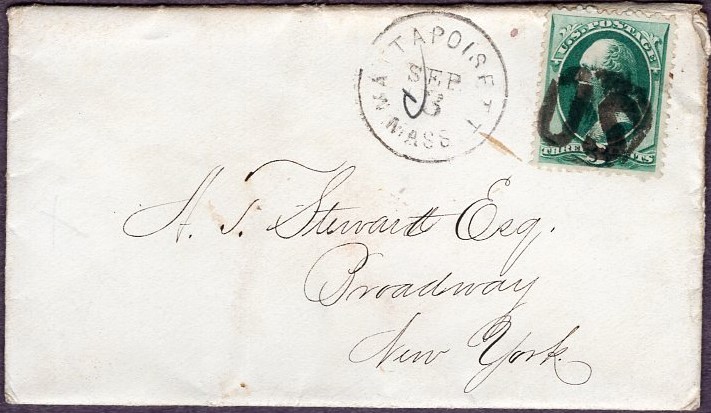 MATTAPOISETT
SEP
3
MASS
U.S. POSTAGE
THREE CENTS
A. T. Stewart Esq.
Broadway
New York.